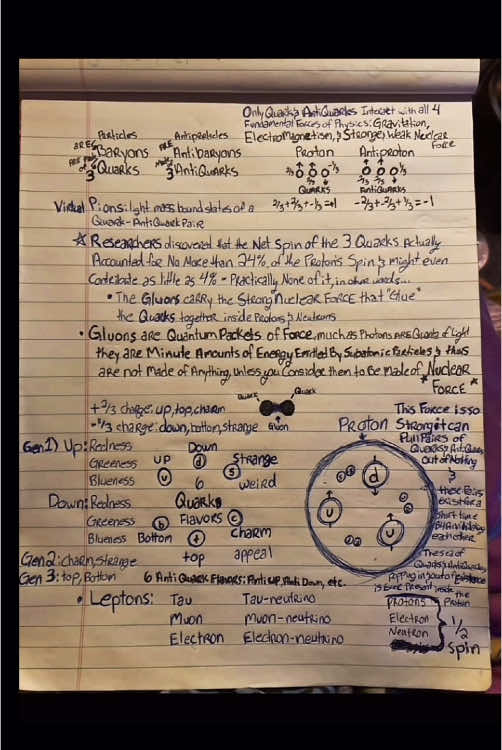 Only Quarks & AntiQuarks Interact with all 4
Fundamental Forces of Physics: Gravitation,
ElectroMagnetism, & Strong & Weak Nuclear
Force
Particles Antiparticles
ARE Baryons ARE Antibaryons Proton Antiproton
ARE made of 3 Quarks made of 3 AntiQuarks
2/3 2/3 -1/3
QUARKS AntiQUARKS
2/3+2/3+-1/3=+1 -2/3+-2/3+1/3=-1
Virtual Pions: light mass bound states of a
Quark-AntiQuark Pair
☆ Researchers discovered that the Net Spin of the 3 Quarks Actually
Accounted for No More than 24% of the Proton's Spin & might even
Contribute as little as 4% - Practically None of it, in other words...
• The Gluons CARRY the Strong Nuclear FORCE that "Glue"
the Quarks together inside Protons & Neutrons
• Gluons are Quantum Packets of Force, much as Photons ARE Quanta of Light
they are Minute Amounts of Energy Emitted By Subatomic Particles & thus
are not Made of Anything, unless you Consider them to be Made of Nuclear
*FORCE*
Quark Quark
Gluon
+2/3 charge: up, top, charm
-1/3 charge: down, bottom, strange
This Force is so
Strong it can
Pull Pairs of
Quarks & AntiQuarks
out of Nothing
&
these Pairs
exist for a
short time
each other
These a of
Quarks & AntiQuarks
Popping in & out of existence
is Ever Present inside the
Proton
Proton
d
u
u
Gen 1) Up: Redness Down
Greeness up d Strange
Blueness u 6 s weird
Down: Redness Quarks
Greeness b Flavors c
Blueness Bottom t charm
Gen 2: charm, strange top appeal
Gen 3: top, Bottom 6 Anti Quark Flavors: Anti up, Anti Down, etc.
• Leptons: Tau Tau-neutrino
Muon Muon-neutrino
Electron Electron-neutrino
Protons
Electron
Neutron
1/2
Spin